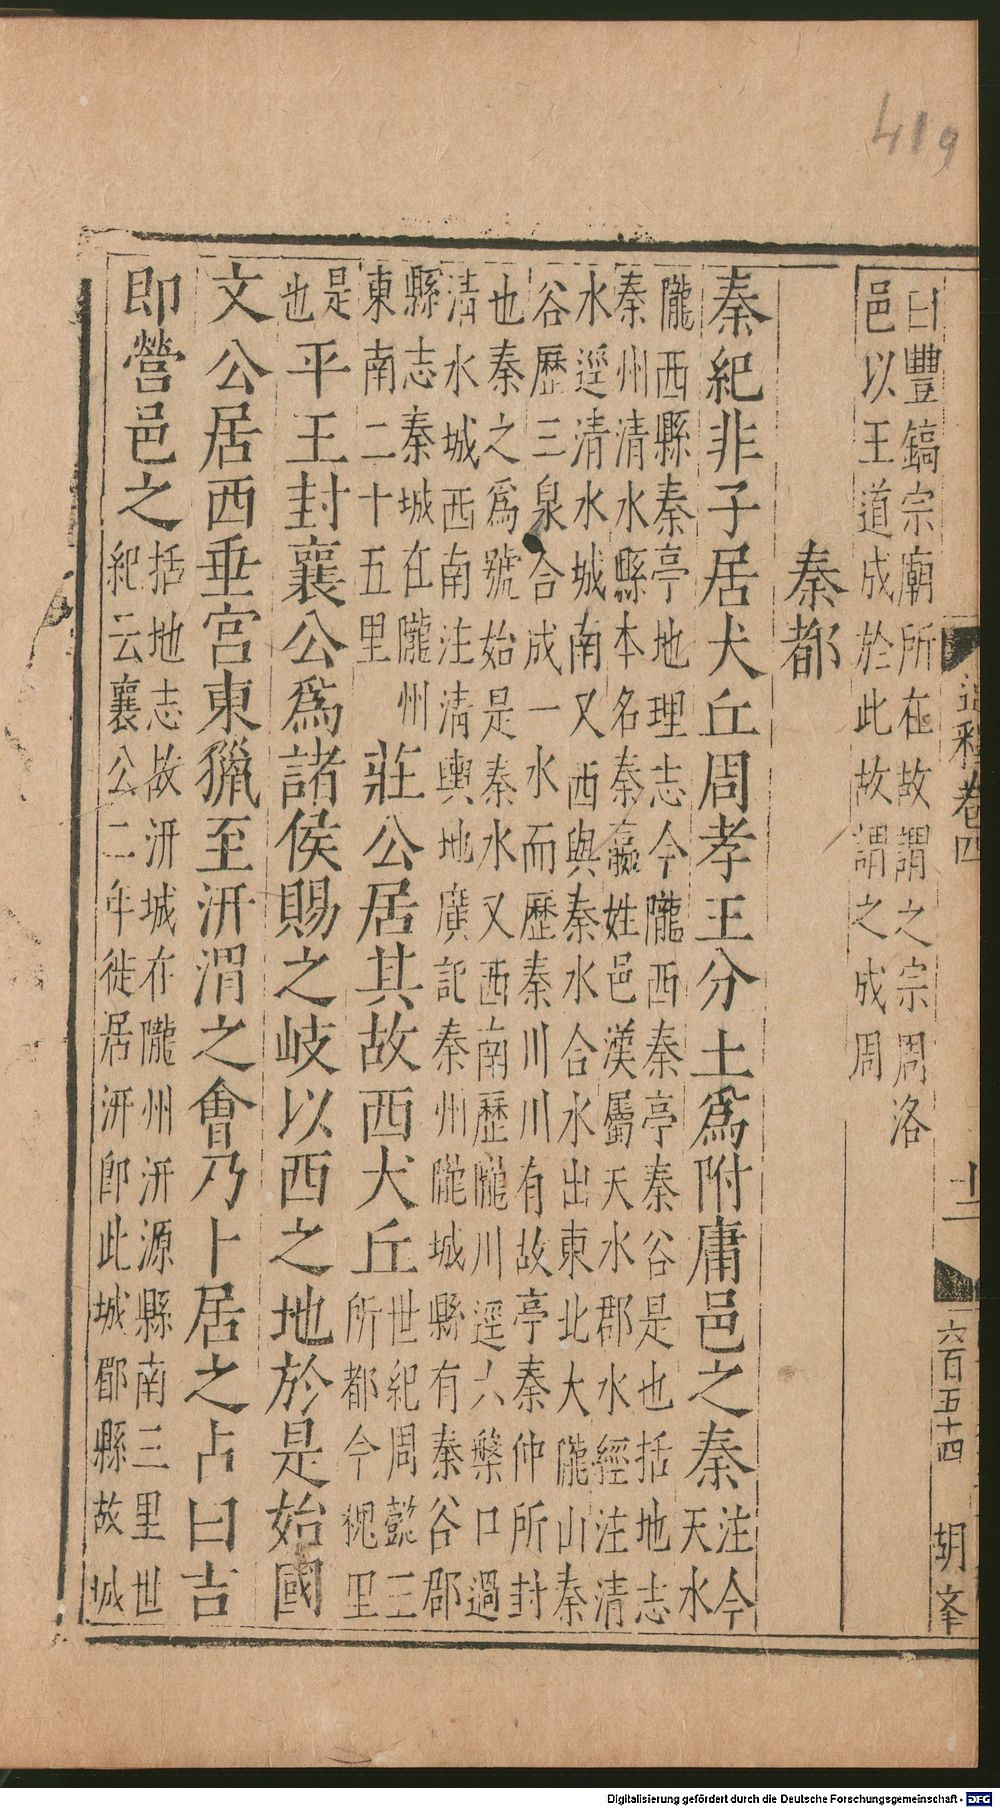 通釋卷四
十二
六百五十四
胡峯
曰豐鎬宗廟所在故謂之宗周洛
邑以王道成於此故謂之成周
秦都
秦紀非子居犬丘周孝王分土爲附庸邑之秦
注今
天水
隴西縣秦亭地理志今隴西秦亭秦谷是也括地志
秦州清水縣本名秦嬴姓邑漢屬天水郡水經注清
水逕清水城南又西與秦水合水出東北大隴山秦
谷歷三泉合成一水而歷秦川川有故亭秦仲所封
也秦之爲號始是秦水又西南歷隴川逕六槃口過
清水城西南注清輿地廣記秦州隴城縣有秦谷郡
縣志秦城在隴州
東南二十五里
莊公居其故西犬丘
世紀周懿王
所都今槐里
是
也
平王封襄公爲諸侯賜之岐以西之地於是始國
文公居西垂宮東獵至汧渭之會乃卜居之占曰吉
即營邑之
括地志故汧城在隴州汧源縣南三里世
紀云襄公二年徙居汧即此城郿縣故城
419
Digitalisierung gefördert durch die Deutsche Forschungsgemeinschaft - DFG